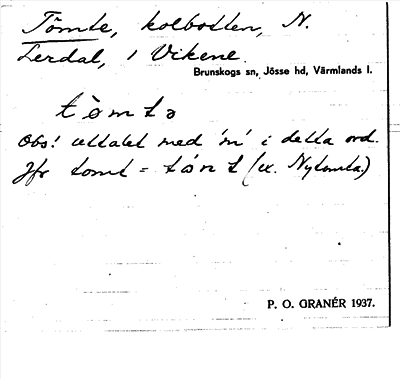 Tömte, kolbotten, N.
Lerdal, i Vikene.
Brunskogs sn, Jösse hd, Värmlands l.
tömtə
Obs! uttalet med 'm' i detta ord.
Jfr tomt = (ex. Nytomta.)
P. O. GRANÉR 1937.